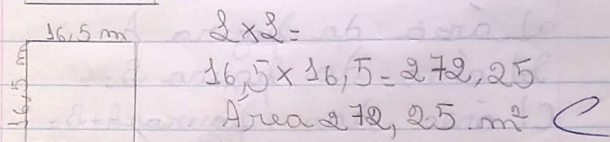 16,5 m
16,5 m
L×L=
16,5×16,5=272,25
Área 272, 25 m²